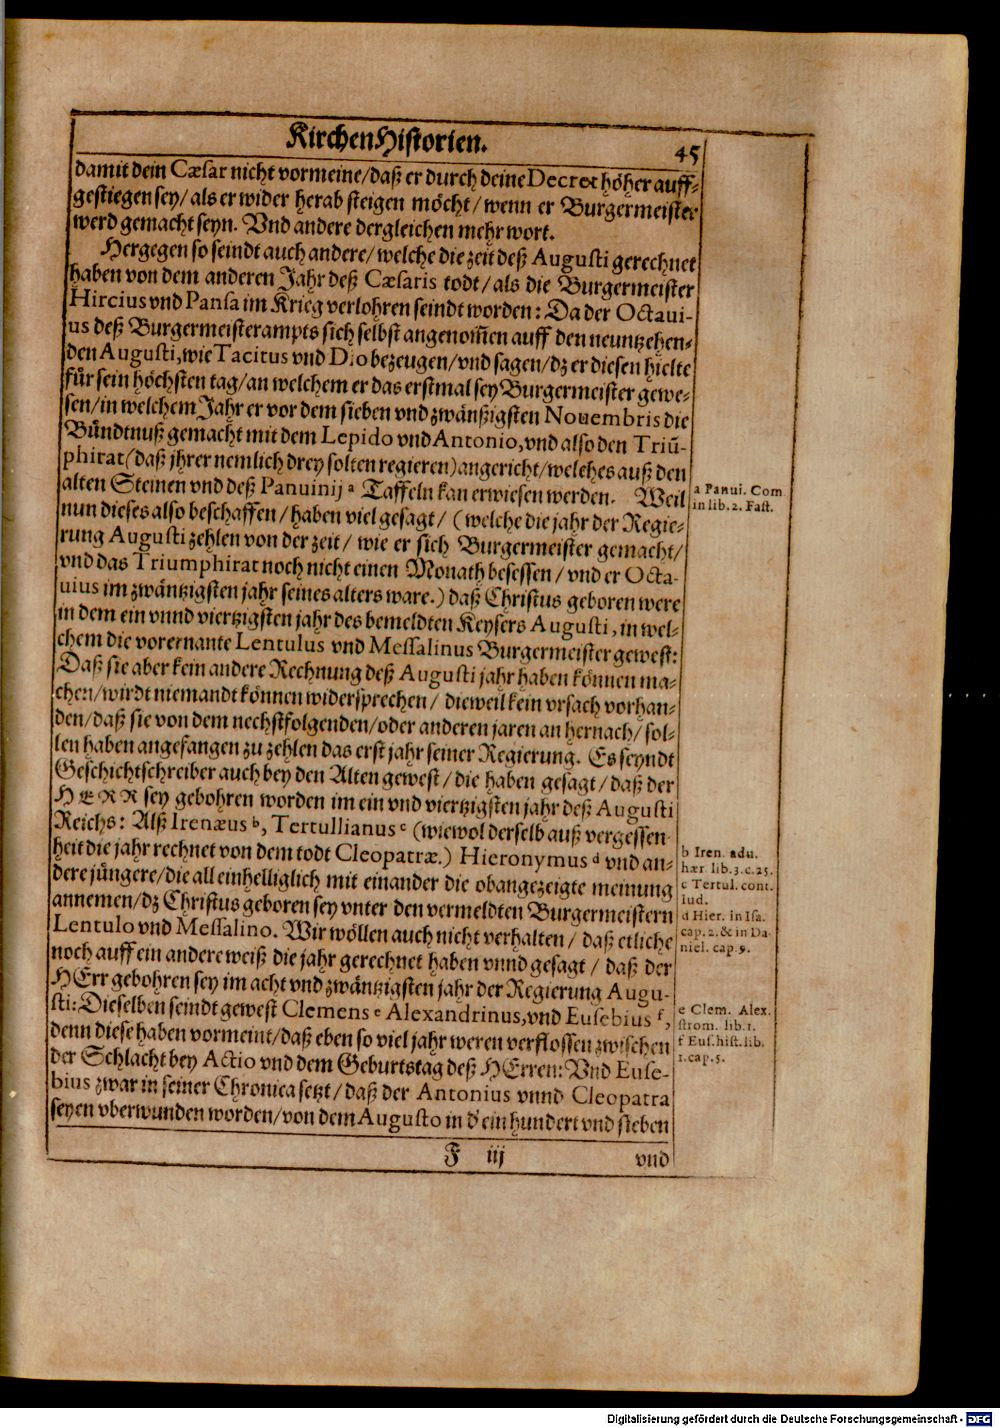 KirchenHistorien.
45
damit dein Cæsar nicht vormeine/daß er durch deine Decret höher auff-
gestiegen sey/als er wider herab steigen möcht/wenn er Burgermeister
werd gemacht seyn. Vnd andere dergleichen mehr wort.
Hergegen so seindt auch andere/welche die zeit deß Augusti gerechnet
haben von dem anderen Jahr deß Cæsaris todt/als die Burgermeister
Hircius vnd Pansa im Krieg verlohren seindt worden: Da der Octaui-
us deß Burgermeisterampts sich selbst angenom̃en auff den neuntzehen-
den Augusti, wie Tacitus vnd Dio bezeugen/vnd sagen/dz er diesen hielte
für sein höchsten tag/an welchem er das erstmal sey Burgermeister gewe-
sen/in welchem Jahr er vor dem sieben vnd zwäntzigsten Nouembris die
Bündtnuß gemacht mit dem Lepido vnd Antonio, vnd also den Triũ-
phirat (daß jhrer nemlich drey solten regieren) angericht/welches auß den
alten Steinen vnd deß Panuinij a Taffeln kan erwiesen werden. Weil
nun dieses also beschaffen/haben viel gesagt/(welche die jahr der Regie-
rung Augusti zehlen von der zeit/wie er sich Burgermeister gemacht/
vnd das Triumphirat noch nicht einen Monath besessen/vnd er Octa-
uius im zwäntzigsten jahr seines alters ware.) daß Christus geboren were
in dem ein vnnd viertzigsten jahr des bemeldten Keysers Augusti, in wel-
chem die vorernante Lentulus vnd Messalinus Burgermeister gewest:
Daß sie aber kein andere Rechnung deß Augusti jahr haben können ma-
chen/wirdt niemandt können widersprechen/dieweil kein vrsach vorhan-
den/daß sie von dem nechstfolgenden/oder anderen jaren an hernach/sol-
len haben angefangen zu zehlen das erst jahr seiner Regierung. Es seyndt
Geschichtschreiber auch bey den Alten gewest/die haben gesagt/daß der
HERR sey gebohren worden im ein vnd viertzigsten jahr deß Augusti
Reichs: Alß Irenæus b, Tertullianus c (wiewol derselb auß vergessen-
heit die jahr rechnet von dem todt Cleopatræ.) Hieronymus d vnd an-
dere jüngere/die all einhelliglich mit einander die obangezeigte meinung
annemen/dz Christus geboren sey vnter den vermeldten Burgermeistern
Lentulo vnd Messalino. Wir wöllen auch nicht verhalten/daß etliche
noch auff ein andere weiß die jahr gerechnet haben vnnd gesagt/daß der
HErr gebohren sey im acht vnd zwäntzigsten jahr der Regierung Augu-
sti: Dieselben seindt gewest Clemens e Alexandrinus, vnd Eusebius f,
denn diese haben vormeint/daß eben so viel jahr weren verflossen zwischen
der Schlacht bey Actio vnd dem Geburtstag deß HErren: Vnd Euse-
bius zwar in seiner Chronica setzt/daß der Antonius vnnd Cleopatra
seyen vberwunden worden/von dem Augusto in d' ein hundert vnd sieben
F iij
vnd
a Panui. Com
in lib. 2. Fast.
b Iren. adu.
hær. lib. 3. c. 25.
c Tertul. cont.
Iud.
d Hier. in Isa.
cap. 2. & in Da-
niel. cap. 9.
e Clem. Alex.
strom. lib. 1.
f Eus. hist. lib.
1. cap. 5.
Digitalisierung gefördert durch die Deutsche Forschungsgemeinschaft - DFG